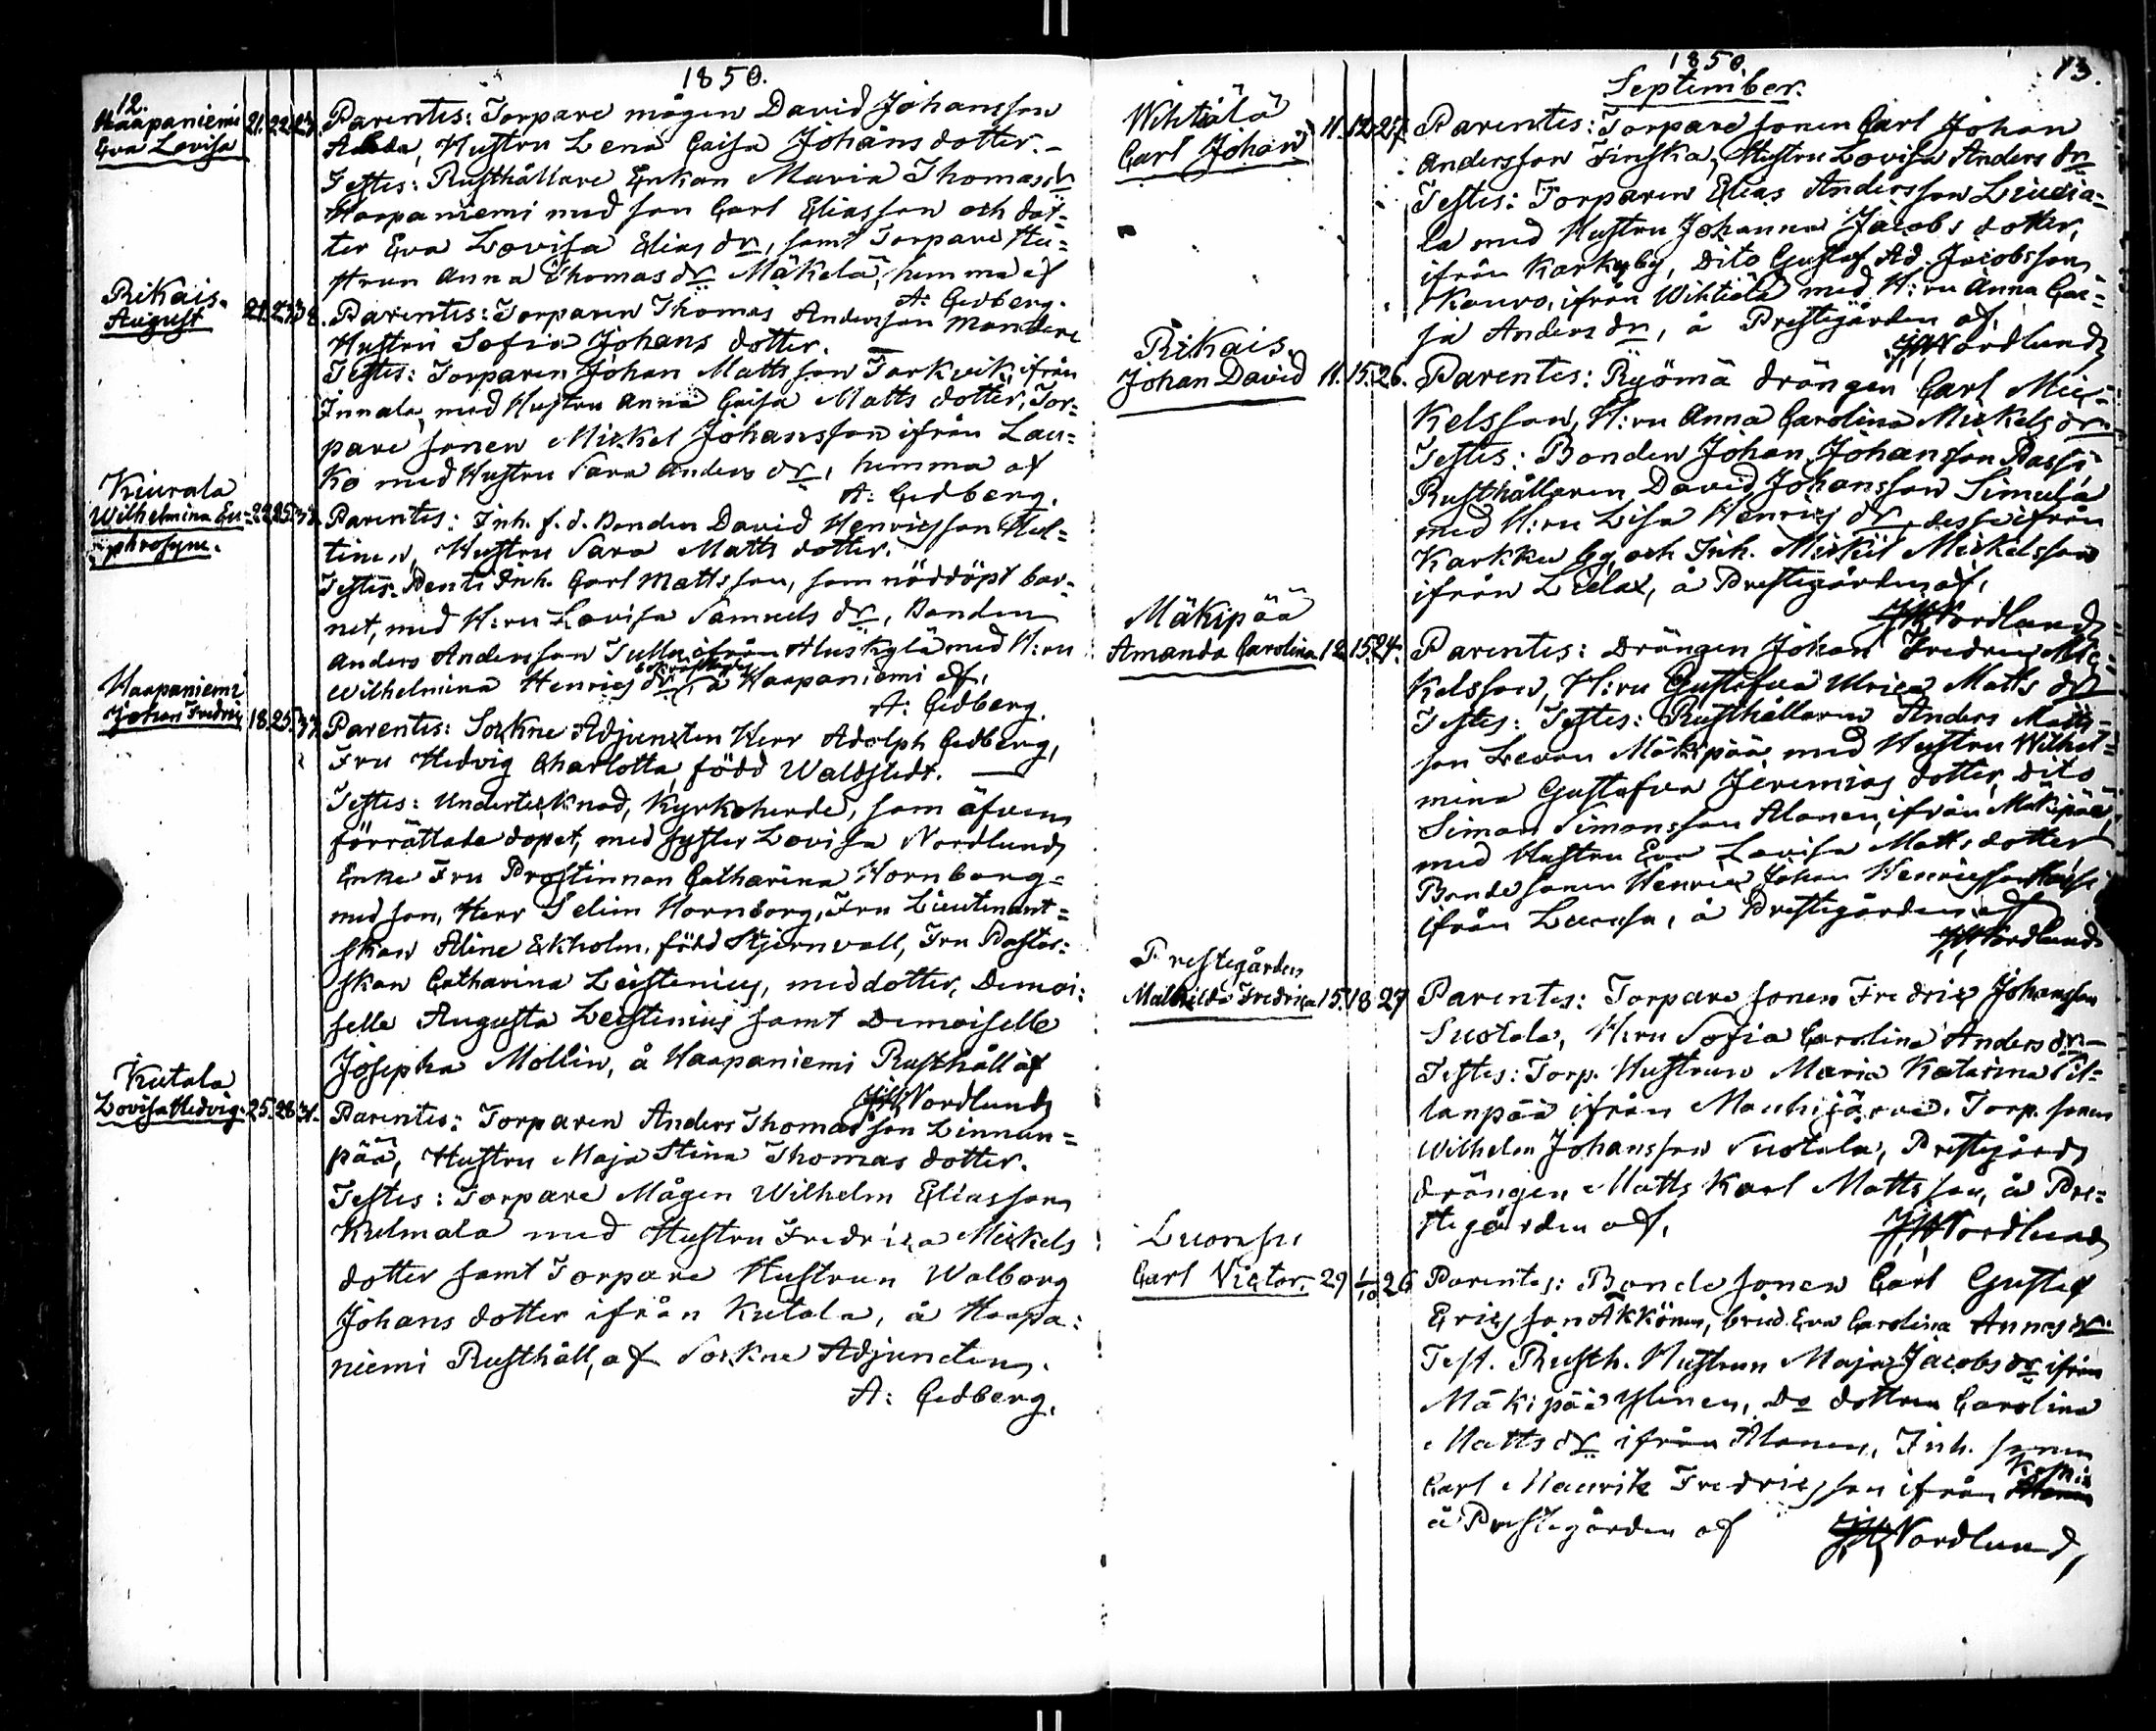 12.
1850.
Haapaniemi
Eva Lovisa 21. 22. 23.
Parentes: Torpare mågen David Johansson
Hustru Lena Caisa Johans dotter.-
Testes: Rusthållare Enkan Maria Thomas dr
Haapaniemi med son Carl Eliasson och dot=
ter Eva Lovisa Elias dr, samt Torpare Hu=
strun Anna Thomas dr Mäkelä, hemma af
A: Cedberg.
Rikais.
August
Parentes: Torparen Thomas Andersson Mandere
Hustru Sofia Johans dotter.
Testes: Torparen Johan Mattsson Torkvik ifrån
Innala, med Hustru Anna Caisa Matts dotter, Tor=
pare sonen Mickel Johansson ifrån Lau=
ko med Hustru Sara Anders dr, hemma af
A: Cedberg.
Kiurala
Wilhelmina Eu=
phrosyne.
Parentes: Inh. f. d. Bonden David Henricsson Hel=
tinen, Hustru Sara Matts dotter.
Testes. Inh. Carl Mattsson, som nöddöpt bar=
net, med H:ru Lovisa Samuels dr, Bonden
Anders Andersson Tulla ifrån Huskylä med H:ru
Wilhelmina Henrics dr, å Haapaniemi af,
A: Cedberg.
Haapaniemi
Johan Fredric 18. 25. 37.
Parentes: Sockne Adjuncten Herr Adolph Cedberg,
Fru Hedvig Charlotta, född Waldstedt. —
Testes: Undertecknad, Kyrkoherde, som äfven
förrättade dopet, med syster Lovisa Nordlund,
Enke Fru Prostinnan Catharina Hornborg=
med son, Herr Selim Hornborg, Fru Lieutenant=
skan Aline Ekholm, född Stjernvall, Fru Pastor=
skan Catharina Leistenius, med dotter, Demoi:
selle Augusta Leistenius samt Demoiselle
Josepha Mollin, å Haapaniemi Rusthåll af
Nordlund
Kutala
Lovisa Hedvig. 25. 28. 31.
Parentes: Torparen Anders Thomasson Linnan=
pää, Hustru Maja Stina Thomas dotter.
Testes: Torpare Mågen Wilhelm Eliasson
Kulmala med Hustru Fredrica Mickels
dotter samt Torpare Hustrun Walborg
Johans dotter ifrån Kutala, å Haapa:
niemi Rusthåll, af Sockne Adjuncten.
A: Cedberg.
1850.
13.
September.
Wihtiälä
Carl Johan 11. 12. 27.
Parentes: Torpare sonen Carl Johan
Andersson Finska, Hustru Lovisa Anders dr
Testes: Torparen Elias Andersson Liuĉia=
la med Hustru Johanna Jacobs dotter,
ifrån Karkuby, Dito Gustaf Ad. Jacobsson
Kouvo, ifrån Wihtiälä med H:ru Anna Cai=
sa Anders dr, å Prestegården af,
Nordlund
Rikais.
Johan David 11. 15. 26.
Parentes: Ryömä drängen Carl Mic=
kelsson, H:ru Anna Carolina Mickels dr
Testes: Bonden Johan Johansson Passi
Rusthållaren David Johansson Simula
med H:ru Lisa Henrics dr, desse ifrån
Karkku by, och Inh. Mickel Mickelsson
ifrån Lielax, å Prestegården af,
Nordlund
Mäkipää
Amanda Carolina 12. 15. 24.
Parentes: Drängen Johan Fredric Mic=
kelsson, H:ru Gustafva Ulrica Matts dr
Testes: Testes: Rusthållaren Anders Matts=
son Levon Mäkipää med Hustru Wilhel=
mina Gustafva Jeremias dotter, dito
Simon Simonsson Alanen, ifrån Mäkipää,
med Hustru Eva Lovisa Matts dotter
Bonde sonen Henric Johan Henricsson
ifrån Luonsu, å Prestegården af
Nordlund
Prestegården
Mathilda Fredrica 15. 18. 27
Parentes: Torpare sonen Fredric Johansson
Suotala, H:ru Sofia Carolina Anders dr—
Testes: Torp. Hustrun Maria Katarina Pil=
lanpää ifrån Mouhijärvi. Torp. sonen
Wilhelm Johansson Suotala, Prestegårds
drängen Matts Karl Mattsson, å Pre=
stegården af,
Nordlund
Luonsu
Carl Victor. 29 1/10 26
Parentes: Bonde sonen Carl Gustaf
Ericsson Äkkönen, brud. Eva Carolina
Test. Rusth. Hustrun Maja Jacobs dr ifrån
Mäkipää Ylinen, Do dottren Carolina
Matts dr ifrån Alanen, Inh. sonen
Carl Maurits Fredricsson ifrån
å Prestegården af Nordlund,